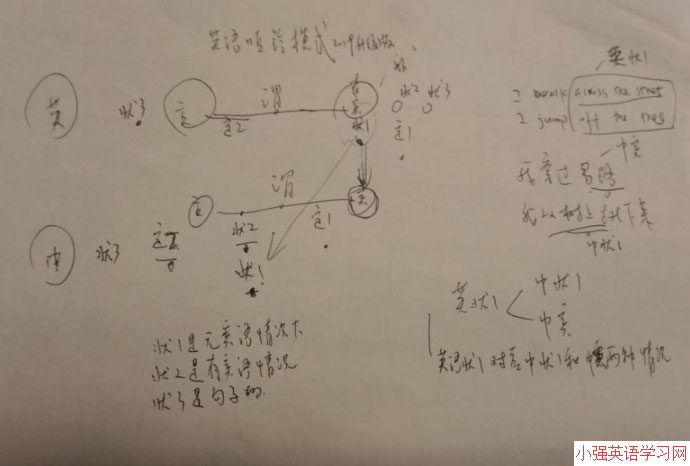 英语哑铃模式2019升级版
英 状3 主 谓 宾 状1 状2 状3
定2 定1
英状1
I walk across the street
I jump off the tree
中宾
我穿过马路
我从树上跳下来
中状1
主 谓 宾
中 状3 定2 状2 定1
状1
英状1 中状1
中宾
英语状1对应中状1和中宾两种情况
状1是无宾语情况下
状2是有宾语情况
状3是句子的
小强英语学习网